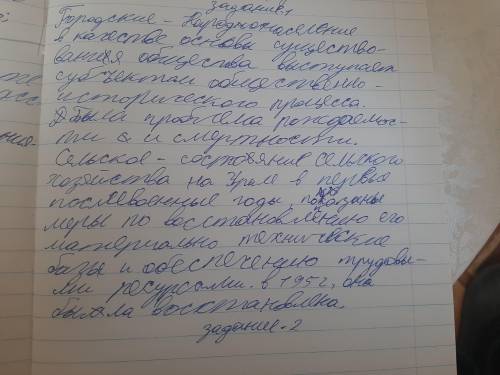 задание.1
Городские - Народонаселение
в качестве основы существо-
вания общества выступает
субъектом общественно -
исторического процесса.
Была проблема рождаемос-
ти и смертности.
Сельское - состояние сельского
хозяйства на Урале в первые
послевоенные годы, показаны
меры по восстановлению его
материально технические
базы и обеспечению трудовы-
ми ресурсами. в 1952, она
была восстановлена.
задание - 2